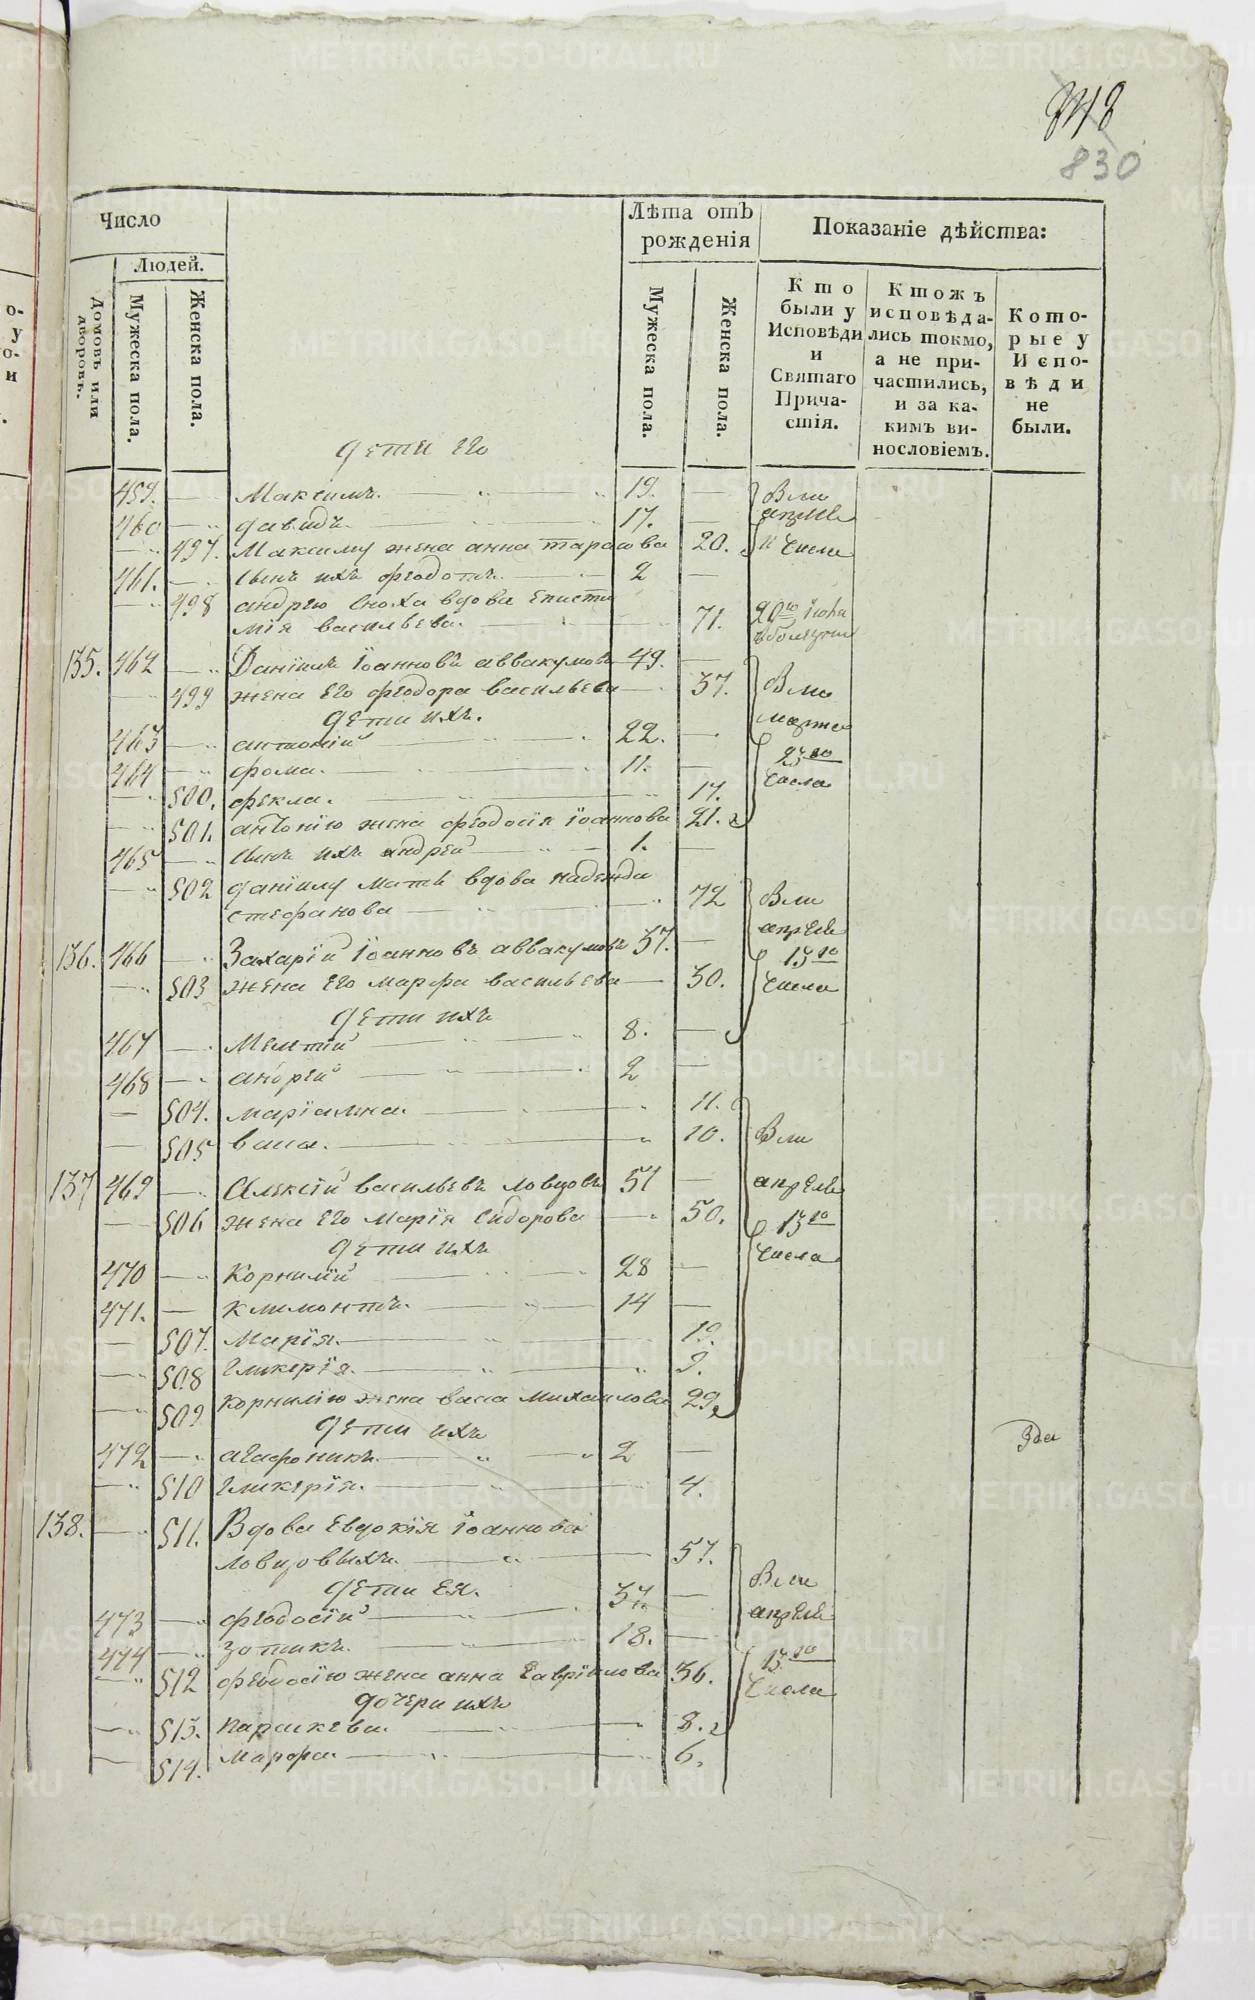 848
830
Число
Лѣта отъ рожденія
Показаніе дѣйства:
Людей.
Домовъ или дворовъ.
Мужеска пола.
Женска пола.
Мужеска пола.
Женска пола.
Кто были у Исповѣди и Святаго Причастія.
Ктожъ исповѣдались токмо, а не причастились, и за какимъ винословіемъ.
Которые у Исповѣди не были.
дети его
459. Максимъ. 19. Вли
460 давидъ. 17. апреле
497. Максиму жена анна тарасова 20. и числа
461. сынъ ихъ феодотъ. 2
498 андрею сноха вдова Еписти
мія васильева. 71. 20го
135. 462 Даніилъ Іоанновъ аввакумовъ 49.
499 жена Его феодора васильева 37. Вли
дети ихъ. марта
463 антоній 22. 23го
464 фома. 11. числа
500. фекла. 17.
501. антонію жена феодосія Іоаннова 21.
465 сынъ ихъ андрей 1.
502 даніилу мать вдова надежда
стефанова 72 Вли
апреле
136. 466 Захарій Іоанновъ аввакумовъ 37. 13го
503 жена Его марфа васильева 30. числа
дети ихъ
467 Мелетій 8.
468 андрей 2
504. маріамна. 11.
505 васа. 10. Вли
137 469 Алексій васильевъ ловцовъ 51 апреле
506 жена Его Марія Сидорова 50. 13го
дети ихъ числа
470 Корнилій 28
471. климонтъ. 14
507. Марія. 19.
508 гликерія. 9.
509 корнилію жена васа михаилова 29.
дети ихъ
472 агафоникъ. 2
510 гликерія. 4.
138. 511. Вдова Евдокія Іоаннова
ловцовыхъ. 57.
дети Ея. Вли
473 феодосій 37. апреле
474 зотикъ. 18. 13го
512 феодосію жена анна Гавріилова 36. числа
дочери ихъ
513. параскева. 8.
514. марфа. 6.
METRIKI.GASO-URAL.RU